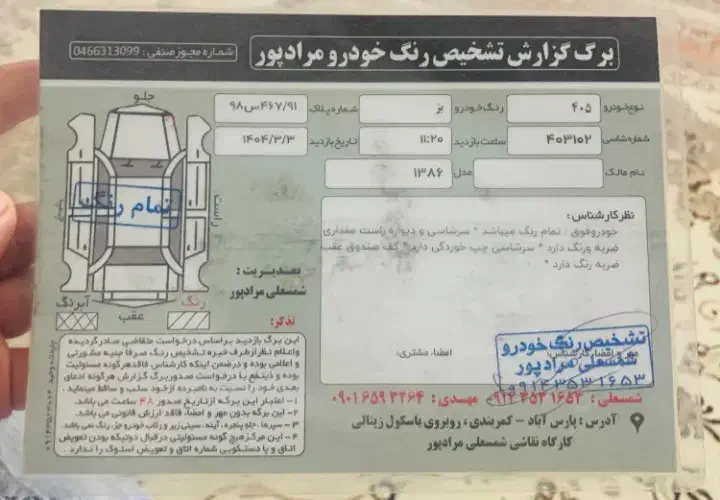 برگ گزارش تشخیص رنگ خودرو مرادپور
شماره مجوز صنفی : 0466313099
نوع خودرو ۴۰۵ رنگ خودرو بژ شماره پلاک ۹۸س۴۶۷/۹۱
شماره شاسی ۴۰۳۱۰۲ ساعت بازدید ۱۱:۲۰ تاریخ بازدید ۱۴۰۴/۳/۳
نام مالک مدل ۱۳۸۶
جلو
راست
تمام رنگ
عقب
رنگ
آبرنگ
نظر کارشناس :
خودروفوق : تمام رنگ میباشد * سرشاسی و دیواره راست مقداری
ضربه ورنگ دارد * سرشاسی چپ خوردگی دارد * کف صندوق عقب
ضربه رنگ دارد *
بمدیریت :
شمسعلی مرادپور
تذکر:
این برگ بازدید براساس درخواست متقاضی صادرگردیده
واعلام نظر ازطرف خبره تشخیص رنگ صرفا جنبه مشورتی
و اعلامی بوده و درضمن اینکه کارشناس فاقد هرگونه مسئولیت
بوده و ذینفع با درخواست صدور برگ گزارش هرگونه ادعای
بعدی خود را نسبت به نامبرده ازخود سلب و ساقط مینماید .
۱- اعتبار این برگه ازتاریخ صدور ۴۸ ساعت می باشد.
۲- این برگه بدون مهر و امضاء، فاقد ارزش قانونی می باشد.
۳- سپرها، جلو پنجره، آینه، سینی زیر و رکاب خودرو جزء رنگ نمی باشد
۴- این مرکز هیچ گونه مسئولیتی درقبال دوتیکه بودن تعویض
اتاق و یا دستکویی شماره اتاق و تعویض استوک را ندارد .
مهر و امضاء کارشناس:
امضاء، مشتری:
تشخیص رنگ خودرو
شمسعلی مرادپور
۰۹۱۴۳۵۳۱۶۵۳
شمسعلی : ۰۹۱۴ ۳۵۳ ۱۶۵۳ مهدی : ۰۹۰۱ ۶۵۹ ۳۲۶۴
آدرس : پارس آباد - کمربندی، روبروی باسکول زینالی
کارگاه نقاشی شمسعلی مرادپور